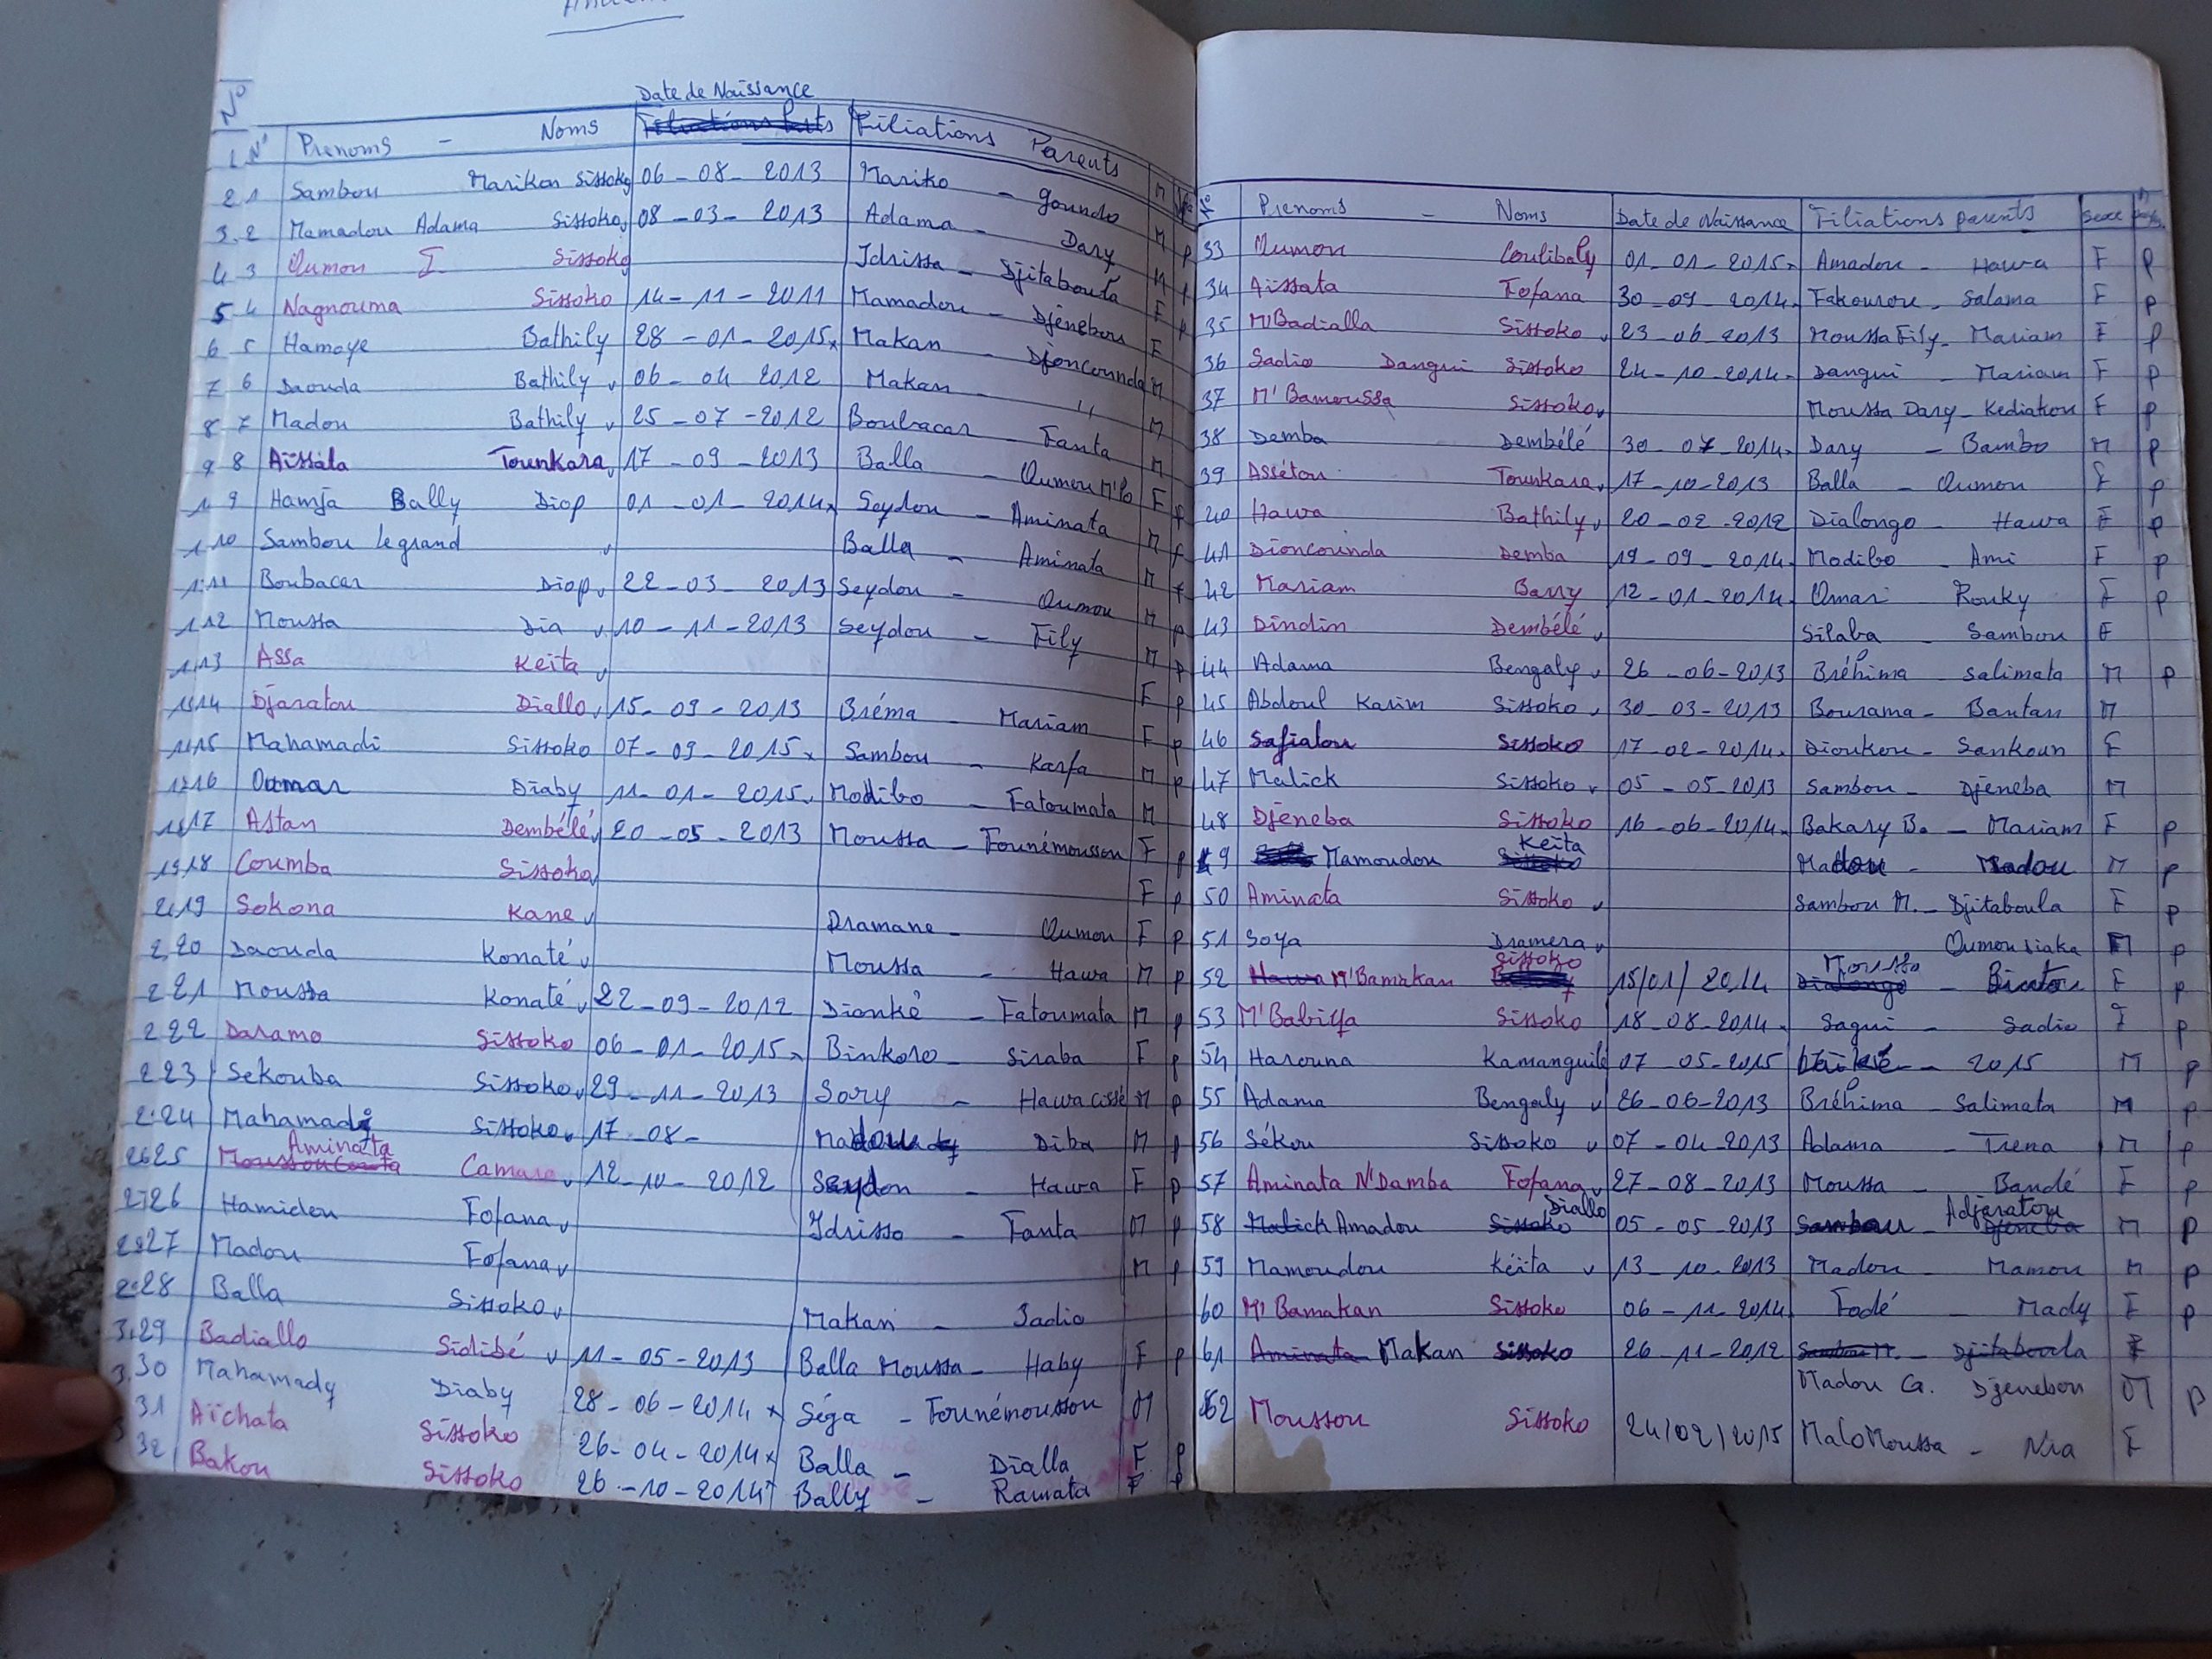 N°
Date de Naissance
N° Prenoms - Noms Filiations Parents M
1 Sambou Marikon Sissoko 06-08-2013 Mariko - Goundo M p
2 Mamadou Adama Sissoko 08-03-2013 Adama - Dary M
3 Oumou I Sissoko Idrissa - Djitaboula F p
4 Nagnouma Sissoko 14-11-2011 Mamadou - Djénébou F
5 Hamoye Bathily 28-01-2015 Makan - Djoncounda M
6 Daouda Bathily 06-04 2012 Makan - " M
7 Madou Bathily 25-07-2012 Boubacar - Fanta M
8 Aïssata Tounkara 17-09-2013 Balla - Oumou M'Po F
9 Hamja Bally Diop 01-01-2014 Seydou - Aminata M
10 Sambou le grand Balla - Aminata M
11 Boubacar Diop 22-03-2013 Seydou - Oumou M p
12 Moussa Dia 10-11-2013 Seydou - Fily M p
13 Assa Keïta F p
14 Djaratou Diallo 15-09-2013 Bréma - Mariam F p
15 Mahamadi Sissoko 07-09-2015 Sambou - Karfa M p
16 Oumar Diaby 11-01-2015 Modibo - Fatoumata M
17 Astan Dembélé 20-05-2013 Moussa - Founémousson F p
18 Coumba Sissoko F p
19 Sokona Kane Dramane - Oumou F p
20 Daouda Konaté Moussa - Hawa M p
21 Moussa Konaté 22-09-2012 Dionké - Fatoumata M p
22 Daramo Sissoko 06-01-2015 Binkoro - Siraba F p
23 Sekouba Sissoko 29-11-2013 Sory - Hawa cissé M p
24 Mahamady Sissoko 17-08- Madou Diba M p
25 Aminata Camara 12-10-2012 Seydou - Hawa F p
26 Hamidou Fofana Idrissa - Fanta M p
27 Madou Fofana M p
28 Balla Sissoko Makan - Sadio
29 Badiallo Sidibé 11-05-2013 Balla Moussa - Haby F p
30 Mahamady Diaby 28-06-2014 Séga - Founémousson M
31 Aïchata Sissoko 26-04-2014 Balla - Dialla F p
32 Bakou Sissoko 26-10-2014 Bally - Ramata F p
N° Prenoms - Noms Date de Naissance Filiations parents Sexe
33 Oumou Coulibaly 01-01-2015 Amadou - Hawa F p
34 Aïssata Fofana 30-09-2014 Fakourou - Salama F p
35 M'Badialla Sissoko 23-06-2013 Moussa Fily - Mariam F p
36 Sadio Dangui Sissoko 24-10-2014 Dangui - Mariam F p
37 M'Bamoussa Sissoko Moussa Dary - Kediakou F p
38 Demba Dembélé 30-07-2014 Dary - Bambo M p
39 Assétou Tounkara 17-10-2013 Balla - Oumou F p
40 Hawa Bathily 20-02-2012 Dialongo - Hawa F p
41 Dioncounda Demba 19-09-2014 Modibo - Ami F p
42 Mariam Barry 12-01-2014 Omar Rouky F p
43 Dindin Dembélé Silaba - Sambou F
44 Adama Bengaly 26-06-2013 Bréhima - Salimata M p
45 Abdoul Karim Sissoko 30-03-2013 Bourama - Bantan M
46 Safiatou Sissoko 17-02-2014 Dioukou - Sankoun F
47 Malick Sissoko 05-05-2013 Sambou - Djéneba M
48 Djéneba Sissoko 16-06-2014 Bakary B. - Mariam F p
49 Mamoudou Keïta Madou - Madou M p
50 Aminata Sissoko Sambou M. - Djitaboula F p
51 Soya Dramera Oumou Siaka M p
52 Hawa M'Bamakan Sissoko 15/01/2014 Dialongo Moussa - Bintou F p
53 M'Babilfa Sissoko 18-08-2014 Sagui - Sadio F p
54 Harouna Kamanguilé 07-05-2015 - 2015 M p
55 Adama Bengaly 26-06-2013 Bréhima - Salimata M p
56 Sékou Sissoko 07-04-2013 Adama - Trena M p
57 Aminata N'Damba Fofana 27-08-2013 Moussa - Bandé F p
58 Malick Amadou Sissoko Diallo 05-05-2013 Sambou - Djéneba Adjaratou M p
59 Mamoudou Kéïta 13-10-2013 Madou - Mamou M p
60 M'Bamakan Sissoko 06-11-2014 Fodé - Mady F p
61 Aminata Makan Sissoko 26-11-2012 Sambou M. - Djitaboula F
Madou G. Djenebou M p
62 Moussou Sissoko 24/02/2015 Malo Moussa - Nia F